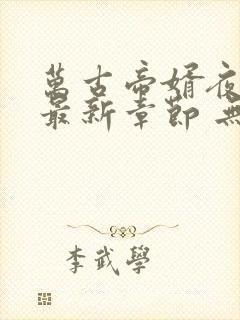 萬古帝婿夜
最新章節 無
李武學